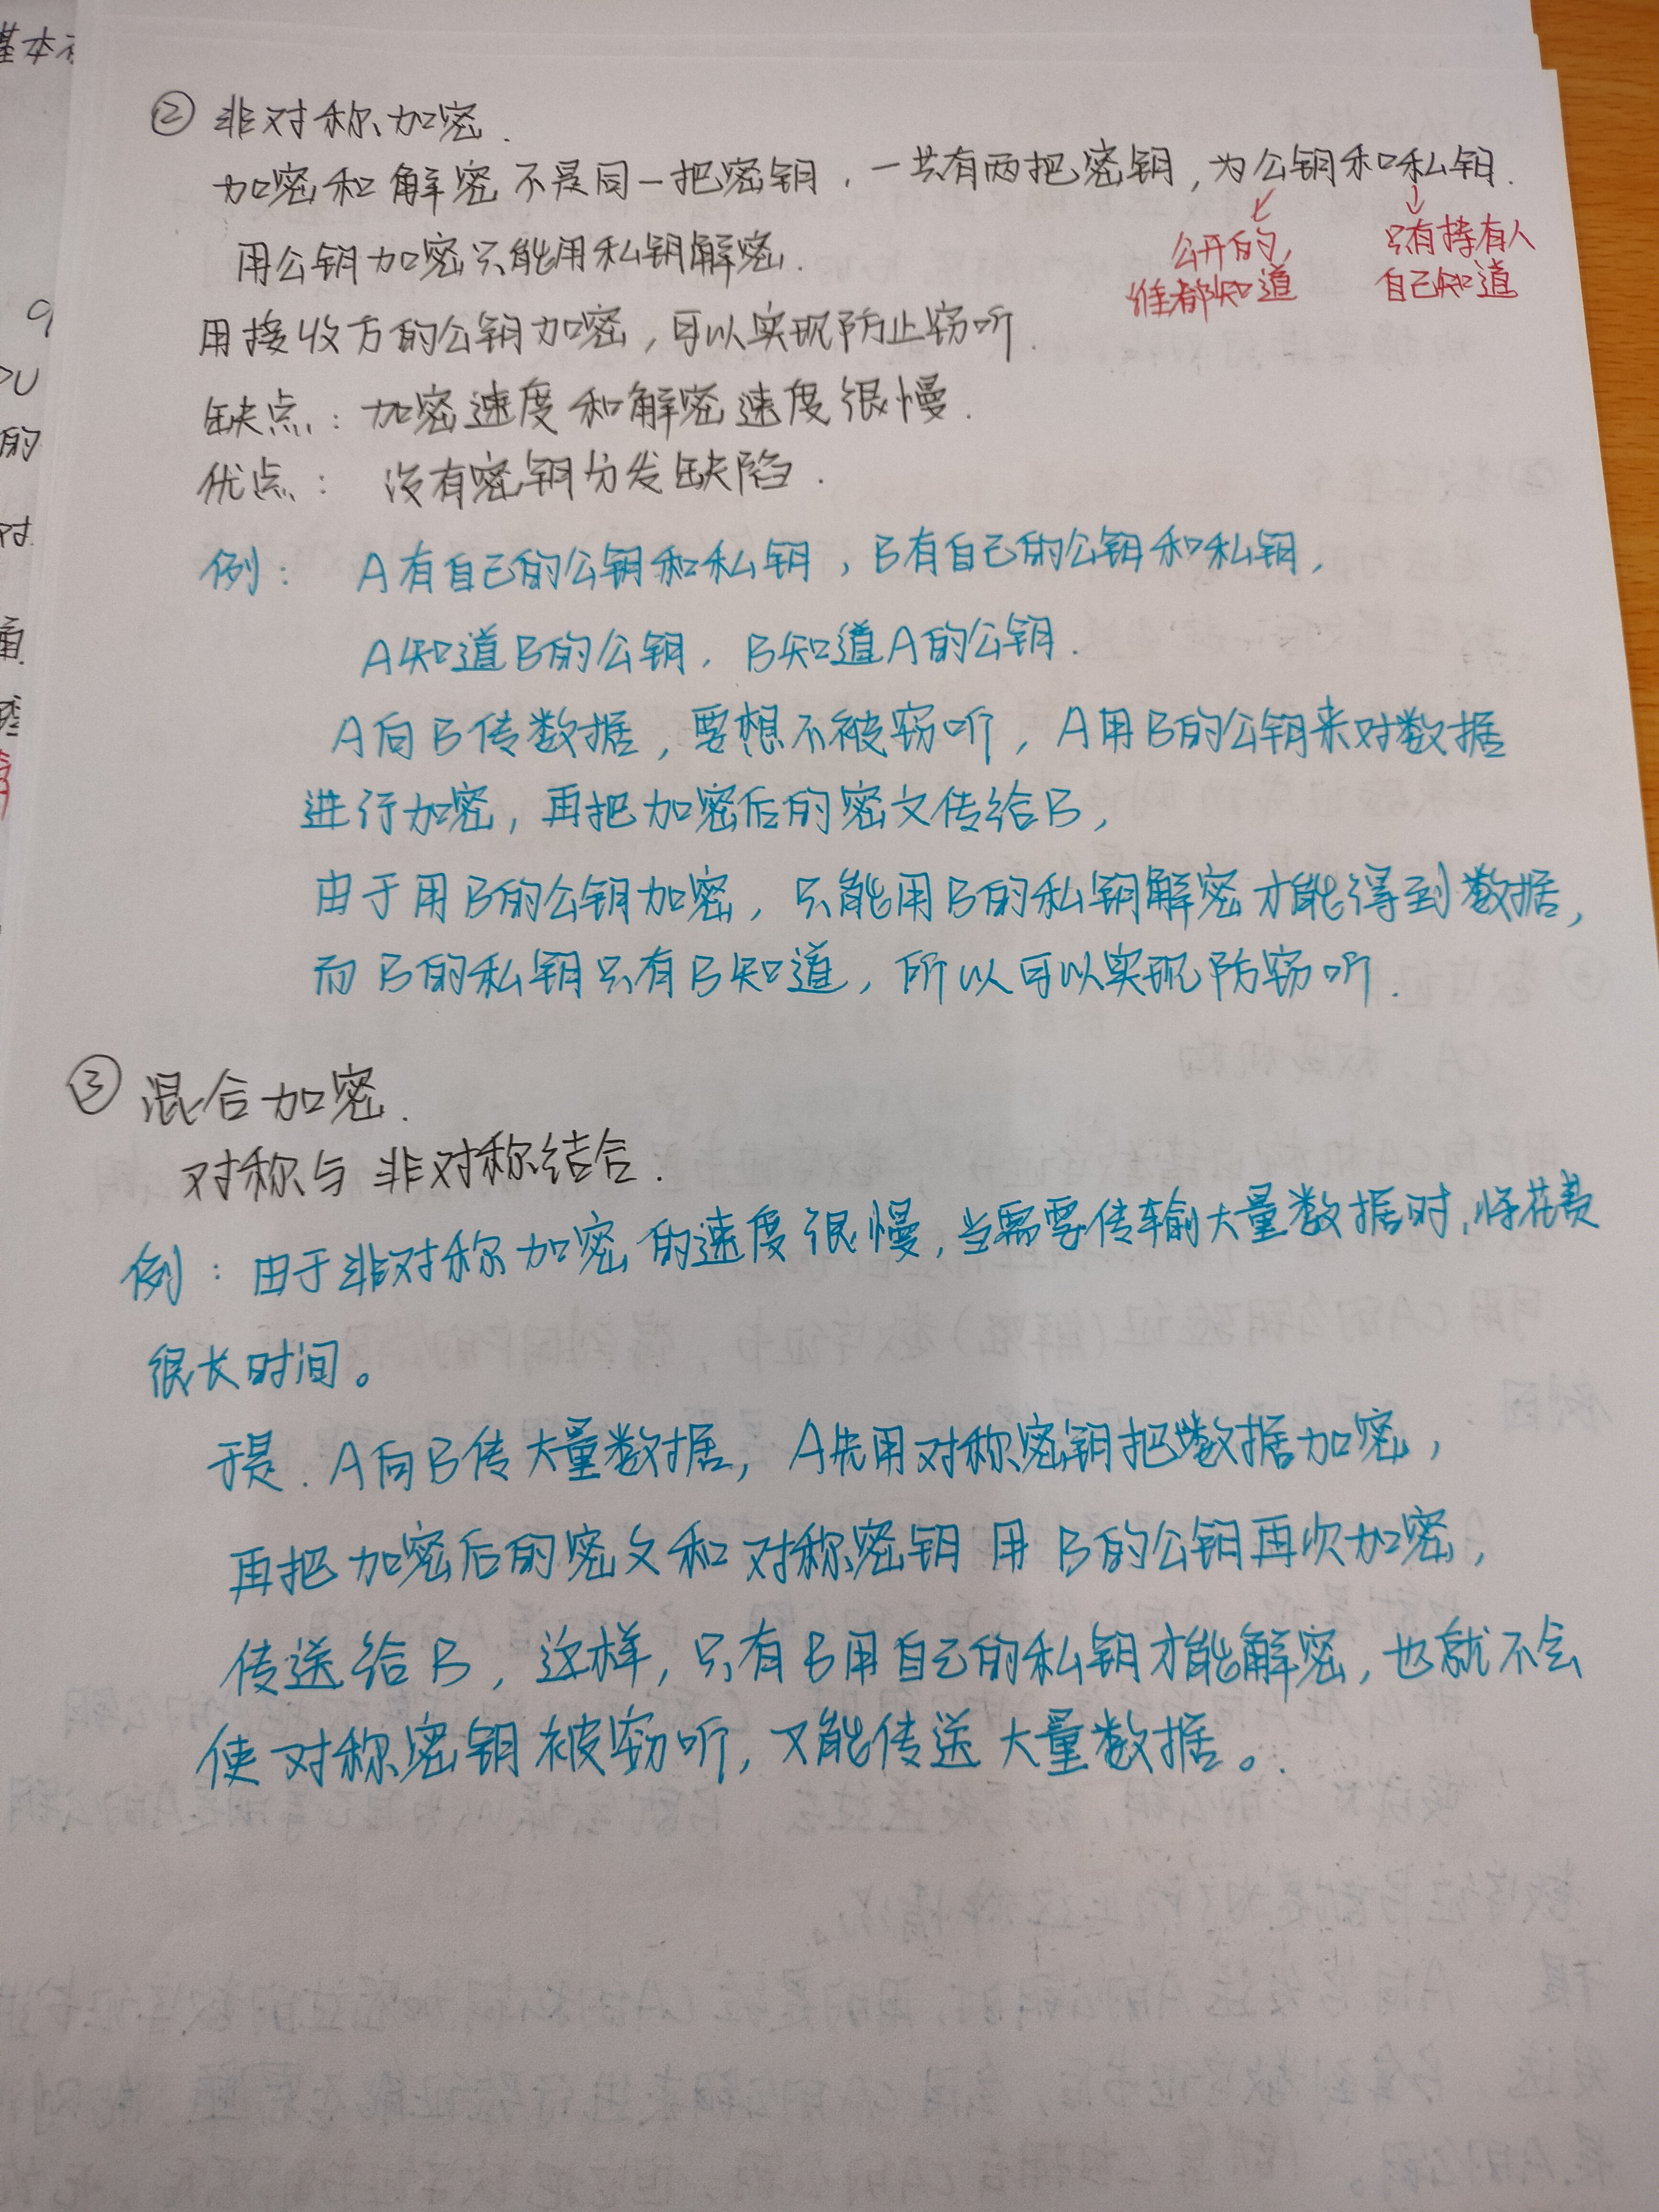 基本
② 非对称加密.
加密和解密不是同一把密钥，一共有两把密钥，为公钥和私钥.
公开的,
谁都知道
只有持有人
自己知道
用公钥加密只能用私钥解密.
用接收方的公钥加密，可以实现防止窃听.
缺点：加密速度和解密速度很慢.
优点：没有密钥分发缺陷.
例：A有自己的公钥和私钥，B有自己的公钥和私钥，
A知道B的公钥，B知道A的公钥.
A向B传数据，要想不被窃听，A用B的公钥来对数据
进行加密，再把加密后的密文传给B，
由于用B的公钥加密，只能用B的私钥解密才能得到数据，
而B的私钥只有B知道，所以可以实现防窃听.
③ 混合加密.
对称与非对称结合.
例：由于非对称加密的速度很慢，当需要传输大量数据时，将花费
很长时间。
于是.A向B传大量数据，A先用对称密钥把数据加密，
再把加密后的密文和对称密钥用B的公钥再次加密，
传送给B，这样，只有B用自己的私钥才能解密，也就不会
使对称密钥被窃听，又能传送大量数据。